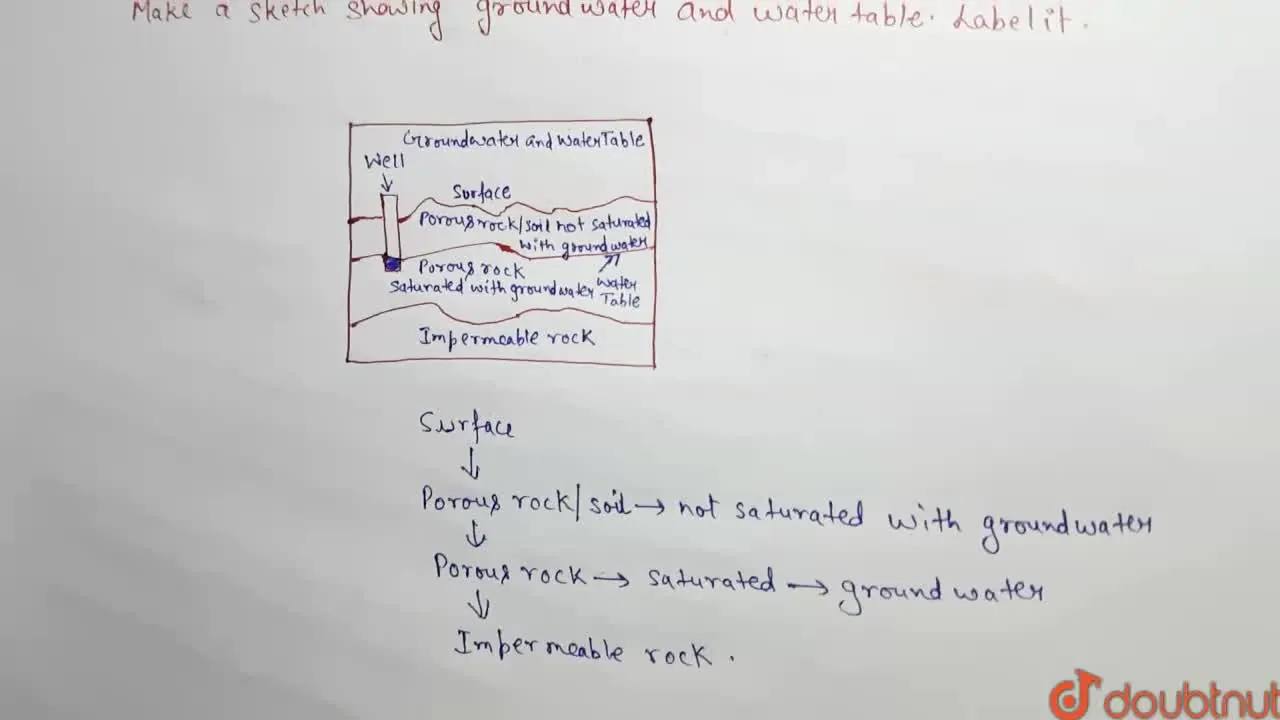 Make a sketch showing groundwater and water table. Label it.
Groundwater and Water Table
Well
Surface
Porous rock/soil not saturated
with groundwater
Porous rock
saturated with groundwater
Water
Table
Impermeable rock
Surface
Porous rock/soil → not saturated with groundwater
Porous rock → saturated → ground water
Impermeable rock.
doubtnut